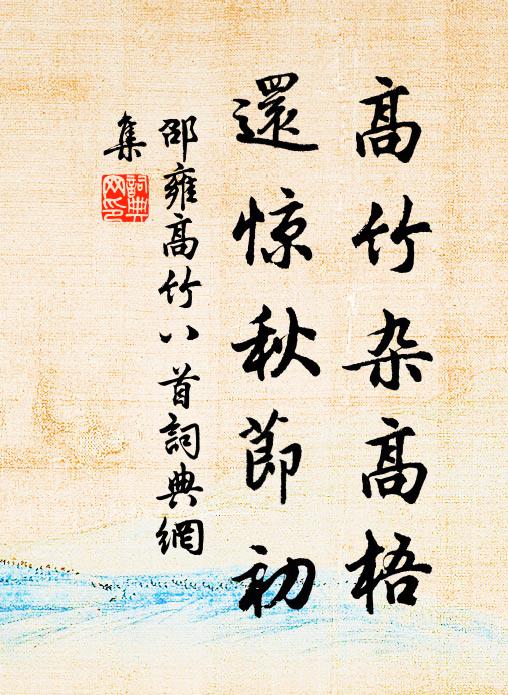 高竹杂高梧
還惊秋節初
邵雍高竹八首詞典網
集
詞典
网印